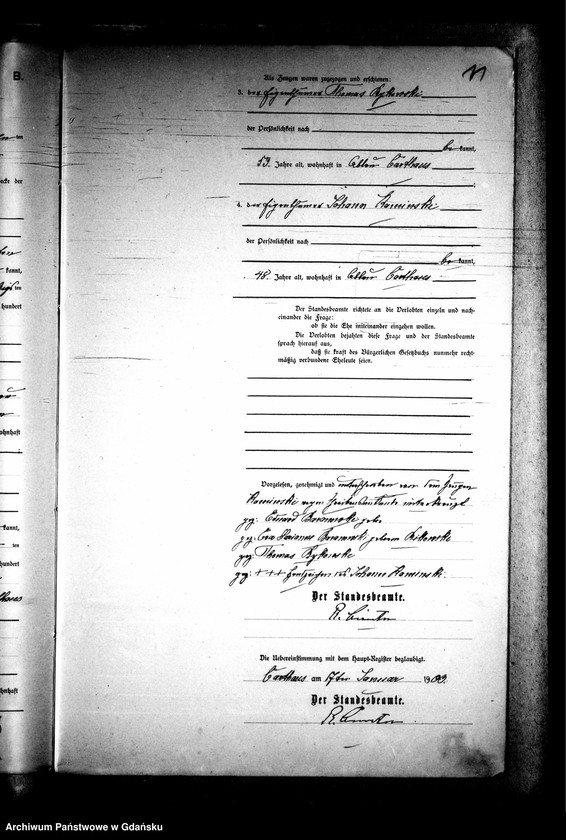 B.
11
Als Zeugen waren zugezogen und erschienen:
3. der Eigenthümer Thomas Rykowski
der Persönlichkeit nach
be kannt,
53 Jahre alt, wohnhaft in Abbau Carthaus
;
4. der Eigenthümer Johann Kaminski
der Persönlichkeit nach
be kannt,
48 Jahre alt, wohnhaft in Abbau Carthaus
Der Standesbeamte richtete an die Verlobten einzeln und nach-
einander die Frage:
ob sie die Ehe miteinander eingehen wollen.
Die Verlobten bejahten diese Frage und der Standesbeamte
sprach hierauf aus,
daß sie kraft des Bürgerlichen Gesetzbuchs nunmehr recht-
mäßig verbundene Eheleute seien.
Vorgelesen, genehmigt und unterschrieben von dem Zeugen
Kaminski wegen Schreibensunkunde unterkreuzt
gez: Eduard
gez: Eva geborene Rykowski
gez: Thomas Rykowski
gez: +++ Handzeichen des Johann Kaminski.
Der Standesbeamte.
Die Uebereinstimmung mit dem Haupt-Register beglaubigt.
Carthaus am 17ten Januar 1903.
Der Standesbeamte.
Archiwum Państwowe w Gdańsku